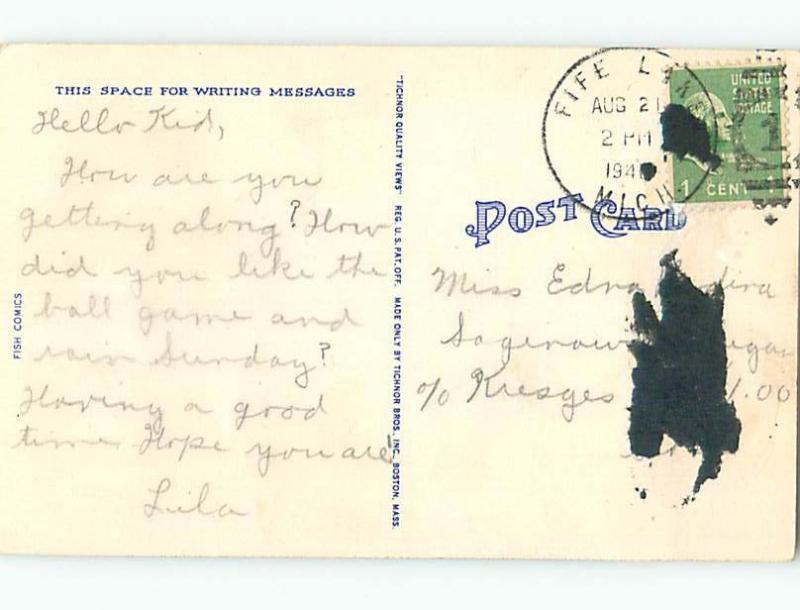 THIS SPACE FOR WRITING MESSAGES
Hello Kid,
How are you
getting along? How
did you like the
ball game and
rain Sunday?
Having a good
time Hope you are!
Lula
FISH COMICS
"TICHNOR QUALITY VIEWS" REG. U. S. PAT. OFF. MADE ONLY BY TICHNOR BROS., INC., BOSTON, MASS.
FIFE LAKE
AUG 21
2 PM
MICH
UNITED
STATES
POSTAGE
1 CENT 1
POST CARD
Miss Edna
Saginaw
% Kresges 1.00